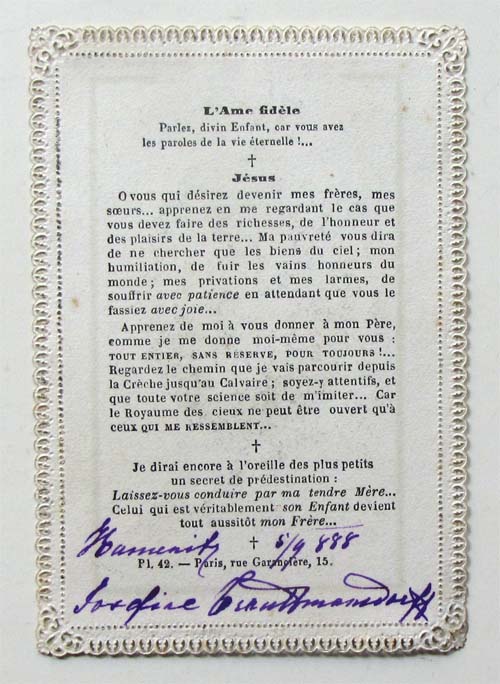 L'Ame fidèle
Parlez, divin Enfant, car vous avez
les paroles de la vie éternelle !...
†
Jésus
O vous qui désirez devenir mes frères, mes
sœurs... apprenez en me regardant le cas que
vous devez faire des richesses, de l'honneur et
des plaisirs de la terre... Ma pauvreté vous dira
de ne chercher que les biens du ciel ; mon
humiliation, de fuir les vains honneurs du
monde ; mes privations et mes larmes, de
souffrir avec patience en attendant que vous le
fassiez avec joie...
Apprenez de moi à vous donner à mon Père,
comme je me donne moi-même pour vous :
TOUT ENTIER, SANS RÉSERVE, POUR TOUJOURS !...
Regardez le chemin que je vais parcourir depuis
la Crèche jusqu'au Calvaire ; soyez-y attentifs, et
que toute votre science soit de m'imiter... Car
le Royaume des cieux ne peut être ouvert qu'à
CEUX QUI ME RESSEMBLENT...
†
Je dirai encore à l'oreille des plus petits
un secret de prédestination :
Laissez-vous conduire par ma tendre Mère...
Celui qui est véritablement son Enfant devient
tout aussitôt mon Frère...
† 5/9 888
Pl. 42. — Paris, rue Garancière, 15.